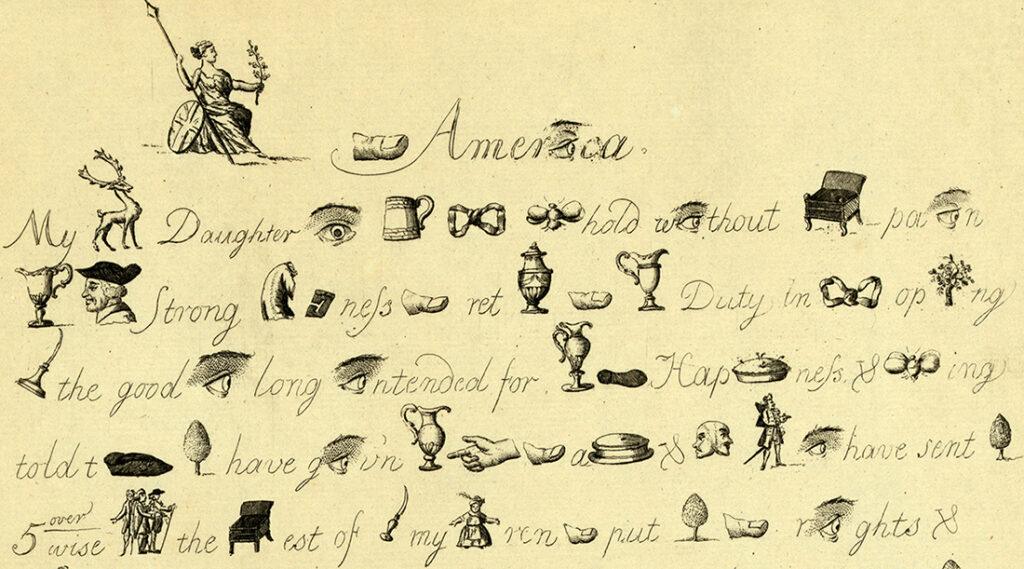 Amer ca.
My Daughter hold w thout pa n
Strong neſs ret Duty in op ng
the good long ntended for Hap neſs. & ing
told t have g v'n a & have sent
5 over wise the est of my ren put r ghts &